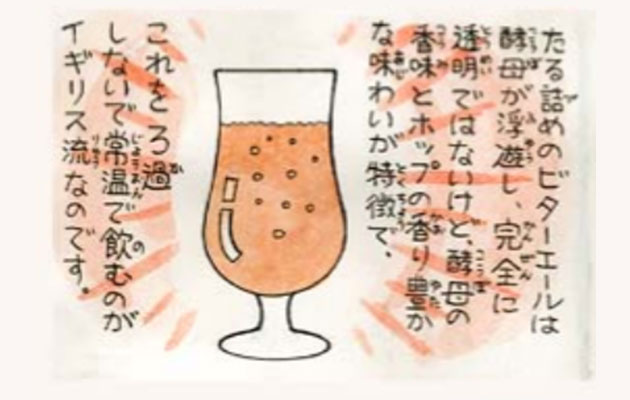 たる詰めのビターエールは
酵母が浮遊し、完全に
透明ではないけど、酵母の
香味とホップの香り豊か
な味わいが特徴で、
これをろ過
しないで常温で飲むのが
イギリス流なのです。